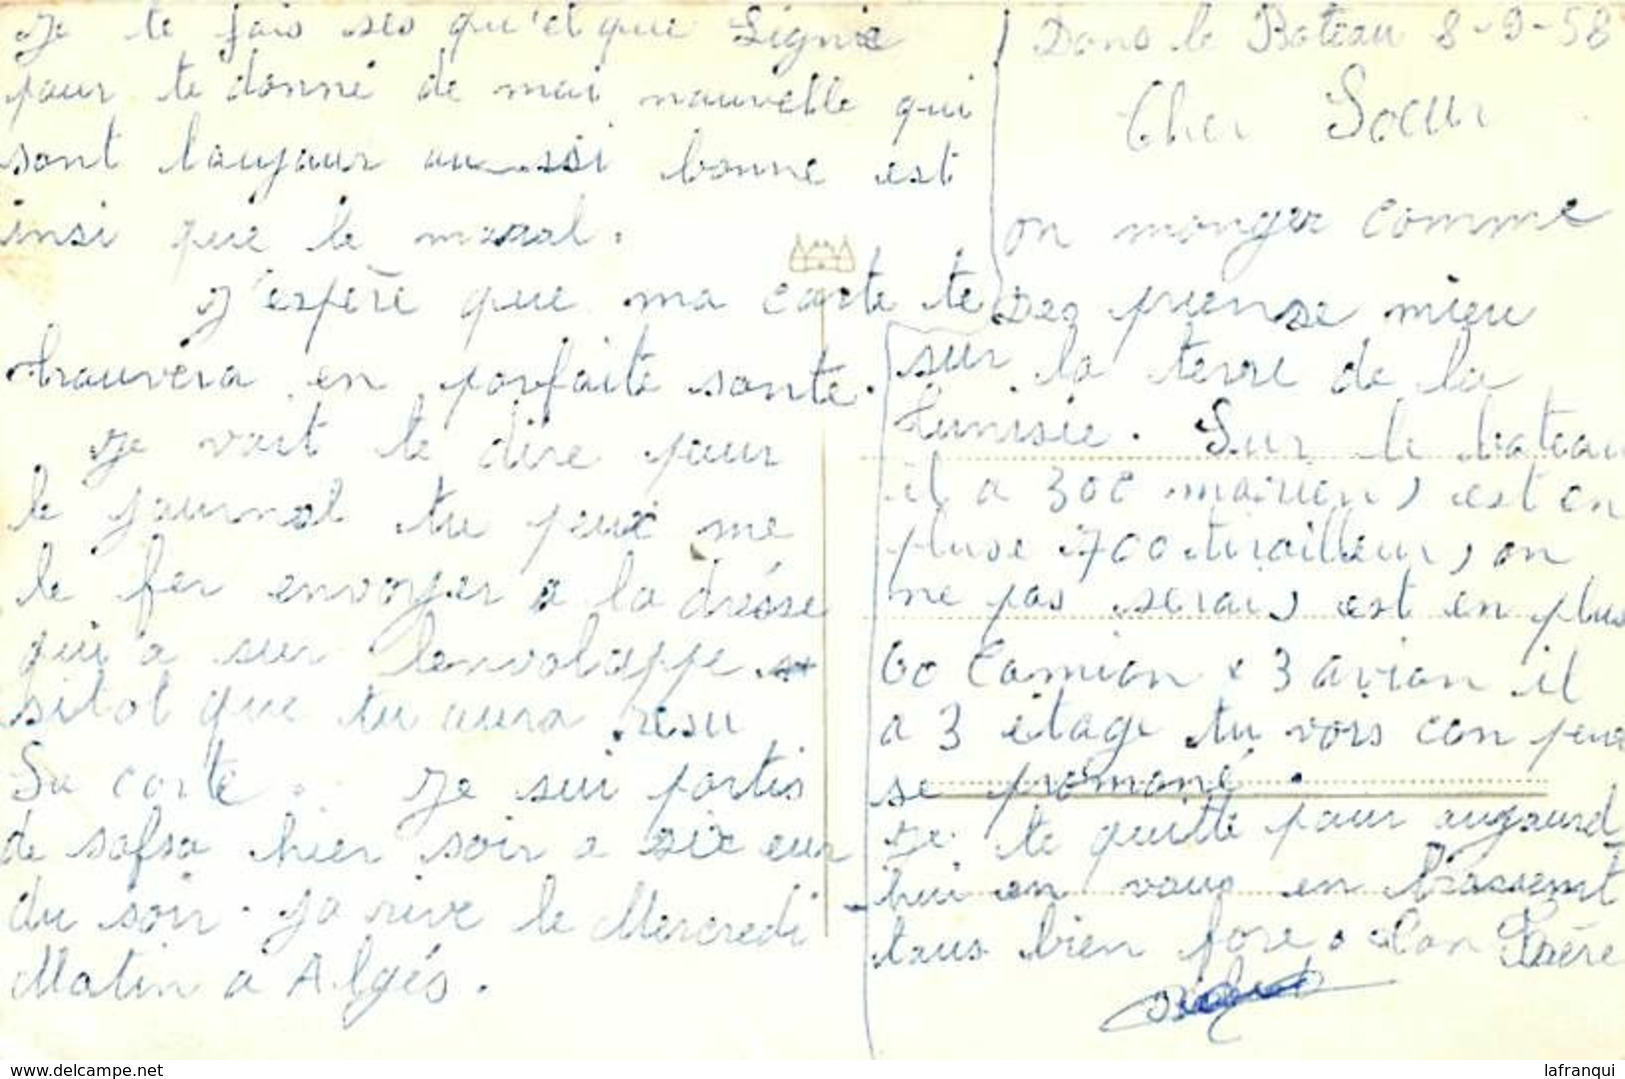 Dans le Bateau 8-9-58
Cher Soeur
Je te fais ses qu'elque Ligne
pour te donné de mai nauvelle qui
sont taujaur aussi bonne est
insi que le moral.
J'espère que ma carte te
trauvera en parfaite sante.
Je vait te dire paur
le journal tu peux me
le fer envoyer a la drésse
qui a sur lenvolappe
sitot que tu aura resu
Sa carte. Je sui partis
de safsa hier soir a six eur
du soir. ja rive le Mercredi
Matin a Algés.
on manger comme
Des prense mieu
sur la terre de la
tunisie. Sur le bateau
il a 300 marien, est en
pluse 700 tirailleur, on
ne pas serai, est en plus
60 Camion x 3 avion il
a 3 étage tu vois con peux
se promoné.
Je te quitte paur aujaurd
hui en vaus en brassent
taus bien fore. Ton Frère
lafranqui
www.delcampe.net